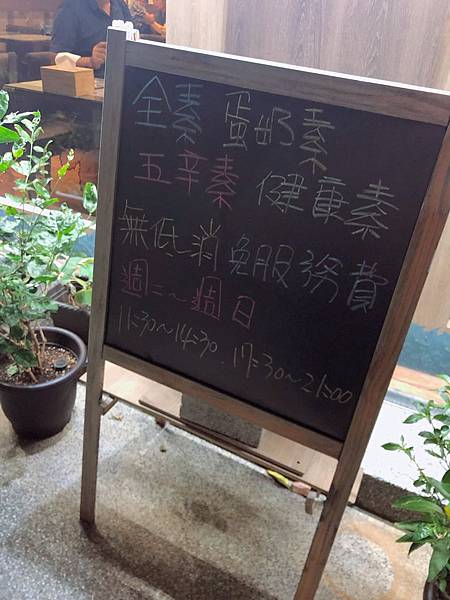 全素 蛋奶素
五辛素 健康素
無低消 免服務費
週二~週日
11:30~14:30. 17:30~21:00